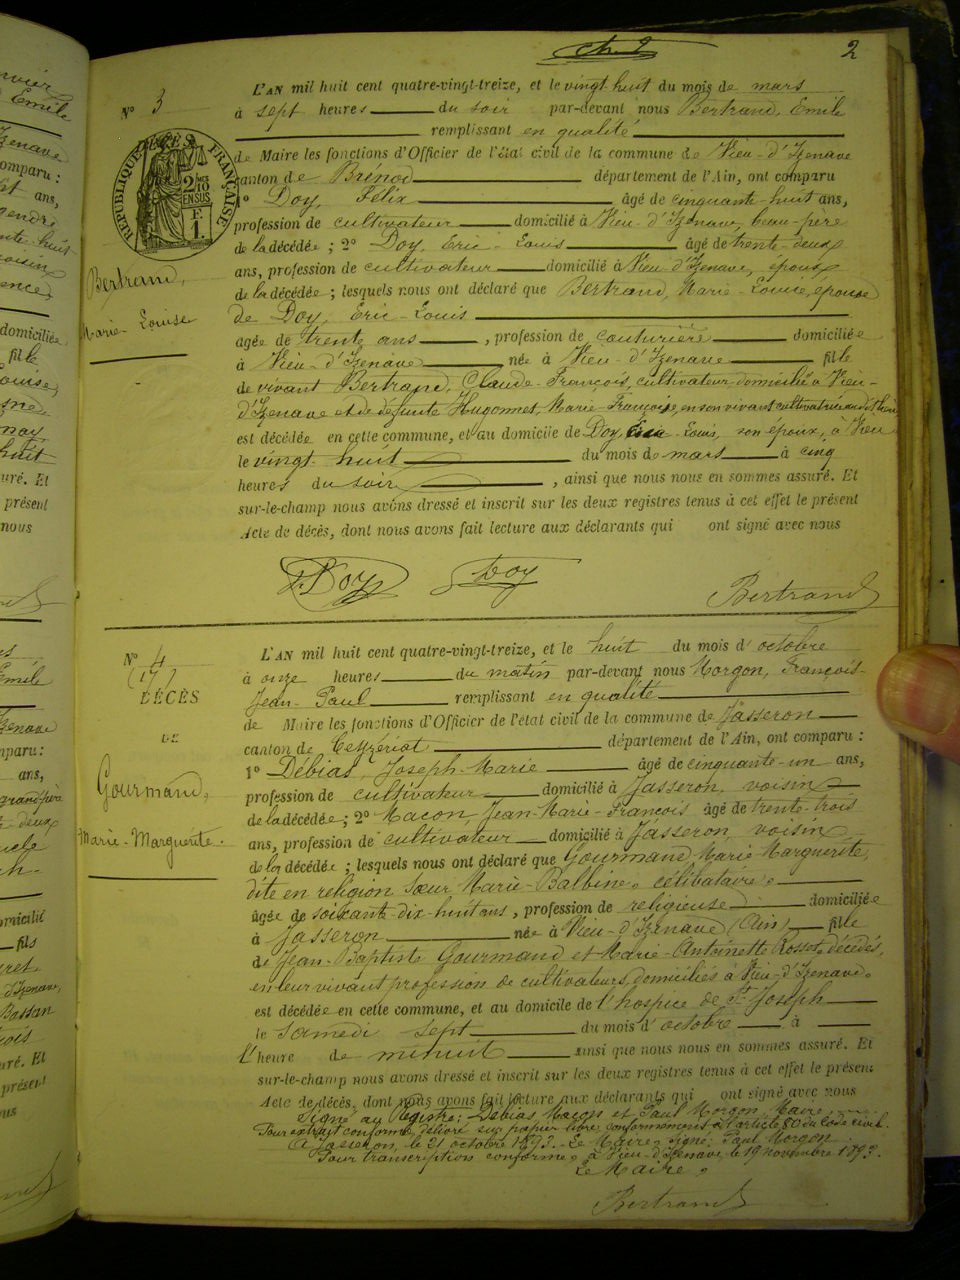 2
N° 3
L'AN mil huit cent quatre-vingt-treize, et le vingt huit du mois de mars
à sept heures du soir par-devant nous Bertrand, Emile
remplissant en qualité
de Maire les fonctions d'Officier de l'état civil de la commune de Vieu-d'Izenave
canton de Brénod département de l'Ain, ont comparu
1° Doy, Félix âgé de cinquante-huit ans,
profession de cultivateur domicilié à Vieu-d'Izenave, beau-père
de la décédée ; 2° Doy, Eric-Louis âgé de trente-deux
ans, profession de cultivateur domicilié à Vieu-d'Izenave, époux
de la décédée ; lesquels nous ont déclaré que Bertrand, Marie-Louise, épouse
de Doy, Eric-Louis
agée de trente ans, profession de couturière domiciliée
à Vieu-d'Izenave née à Vieu-d'Izenave fille
de vivant Bertrand, Claude-François, cultivateur domicilié à Vieu-
d'Izenave et de défunte Hugonnet, Marie-Françoise, en son vivant cultivatrice audit lieu
est décédée en cette commune, et au domicile de Doy, Eric-Louis, son époux, à Vieu
le vingt-huit du mois de mars à cinq
heures du soir, ainsi que nous nous en sommes assuré. Et
sur-le-champ nous avons dressé et inscrit sur les deux registres tenus à cet effet le présent
Acte de décès, dont nous avons fait lecture aux déclarants qui ont signé avec nous
RÉPUBLIQUE FRANÇAISE
2/10 EN SUS
F 1.
Bertrand,
Marie-Louise
F. Doy Doy Bertrand
N° 4
DÉCÈS
DE
Gourmand,
Marie-Marguerite.
L'AN mil huit cent quatre-vingt-treize, et le huit du mois d'octobre
à onze heures du matin par-devant nous Morgon, François-
Jean-Paul remplissant en qualité
de Maire les fonctions d'Officier de l'état civil de la commune de Jasseron
canton de Ceyzériat département de l'Ain, ont comparu :
1° Débias, Joseph-Marie âgé de cinquante-un ans,
profession de cultivateur domicilié à Jasseron, voisin
de la décédée ; 2° Macon, Jean-Marie-François âgé de trente-trois
ans, profession de cultivateur domicilié à Jasseron, voisin
de la décédée ; lesquels nous ont déclaré que Gourmand Marie Marguerite,
dite en religion Sœur Marie-Balbine, célibataire,
âgée de soixante-dix-huit ans, profession de religieuse domiciliée
à Jasseron née à Vieu-d'Izenave (Ain) fille
de Jean-Baptiste Gourmand et Marie-Antoinette Rosset décédés,
en leur vivant profession de cultivateurs, domiciliés à Vieu-d'Izenave
est décédée en cette commune, et au domicile de l'hospice de St Joseph
le samedi sept du mois d'octobre à
l'heure de minuit ainsi que nous nous en sommes assuré. Et
sur-le-champ nous avons dressé et inscrit sur les deux registres tenus à cet effet le présent
Acte de décès, dont nous avons fait lecture aux déclarants qui ont signé avec nous
Signé au Registre: Débias, Macon et Paul Morgon, Maire
Pour extrait conforme délivré sur papier libre, conformément à l'article 80 du Code civil.
A Jasseron, le 21 octobre 1893. Le Maire, signé: Paul Morgon.
Pour transcription conforme, à Vieu-d'Izenave le 19 novembre 1893.
Le Maire,
Bertrand